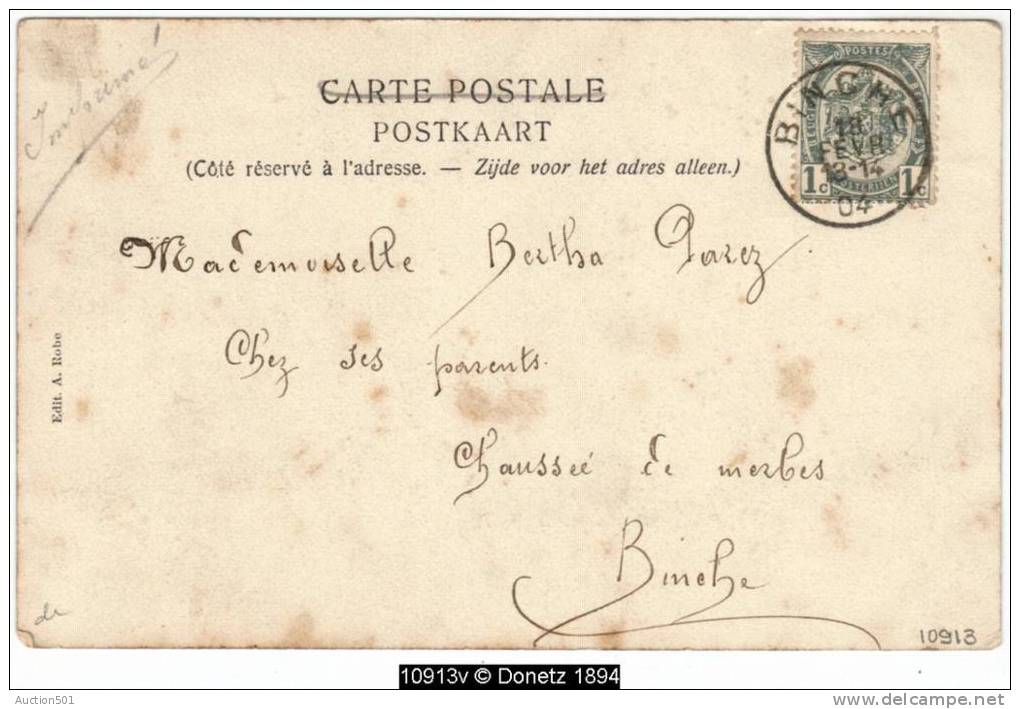 Imprimé
CARTE POSTALE
POSTKAART
(Côté réservé à l'adresse. — Zijde voor het adres alleen.)
POSTES
BINCHE
18
FEVR
13-14
04
1c 1c
Mademoiselle Bertha Parez
Chez ses parents.
Chausseé de merbes
Binche
Edit. A. Robe
de
10913
10913v © Donetz 1894
Auction501
www.delcampe.net